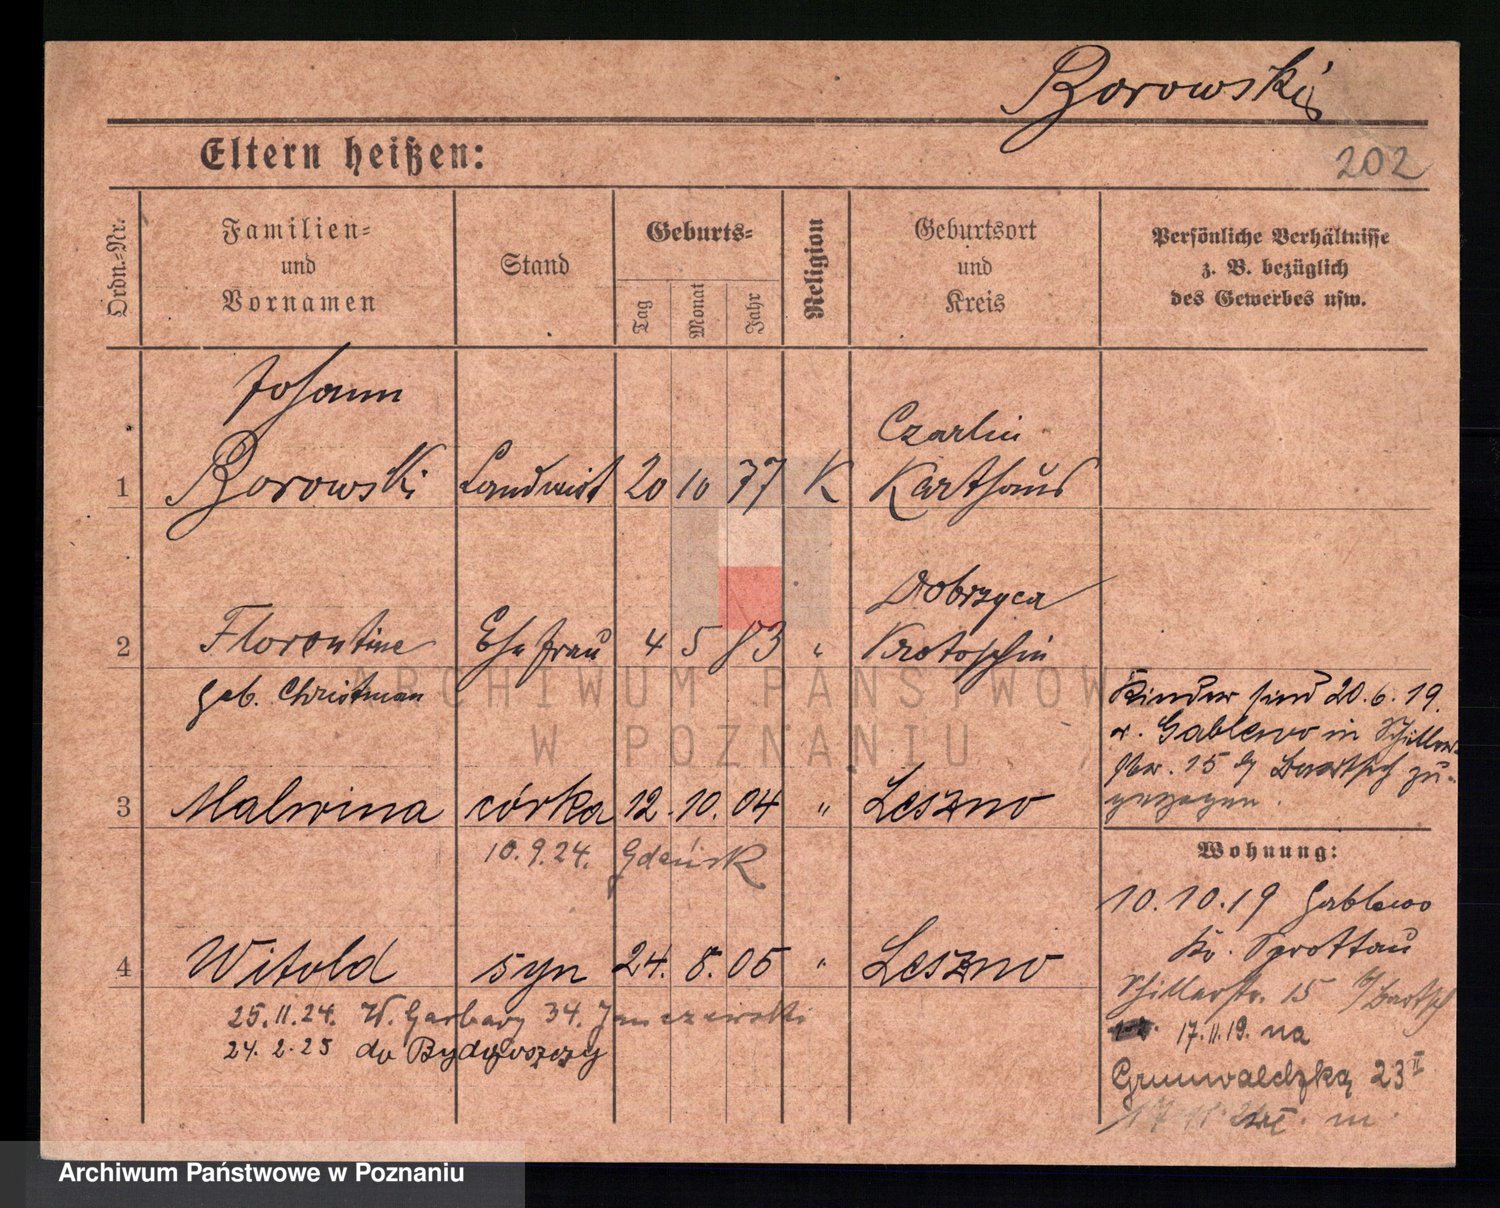 Borowski
202
Eltern heißen:
Ordn.-Nr.
Familien-
und
Vornamen
Stand
Geburts-
Tag
Monat
Jahr
Religion
Geburtsort
und
Kreis
Persönliche Verhältnisse
z. B. bezüglich
des Gewerbes usw.
Johann
Czarlin
1 Borowski Landwirt 20 10 77 K Karthaus
Dobrzyca
2 Florentine Ehefrau 4 5 83 " Krotoschin
geb. Christman
Kinder sind 20.6.19.
v. Gablewo in Schiller-
str. 15 b/ Bartsch zu-
gezogen.
3 Malwina córka 12. 10. 04 " Leszno
10.9.24. Gdańsk
Wohnung:
10.10.19 Gablewo
Kr. Sprottau
Schillerstr. 15 b/Bartsch
17.11.19. na
Grunwaldzką 23 II
4 Witold syn 24. 8. 05 " Leszno
25.11.24. W. Garbary 34. Janczewski
24.2.25 do Bydgoszczy
ARCHIWUM PAŃSTWOWE
W POZNANIU
Archiwum Państwowe w Poznaniu